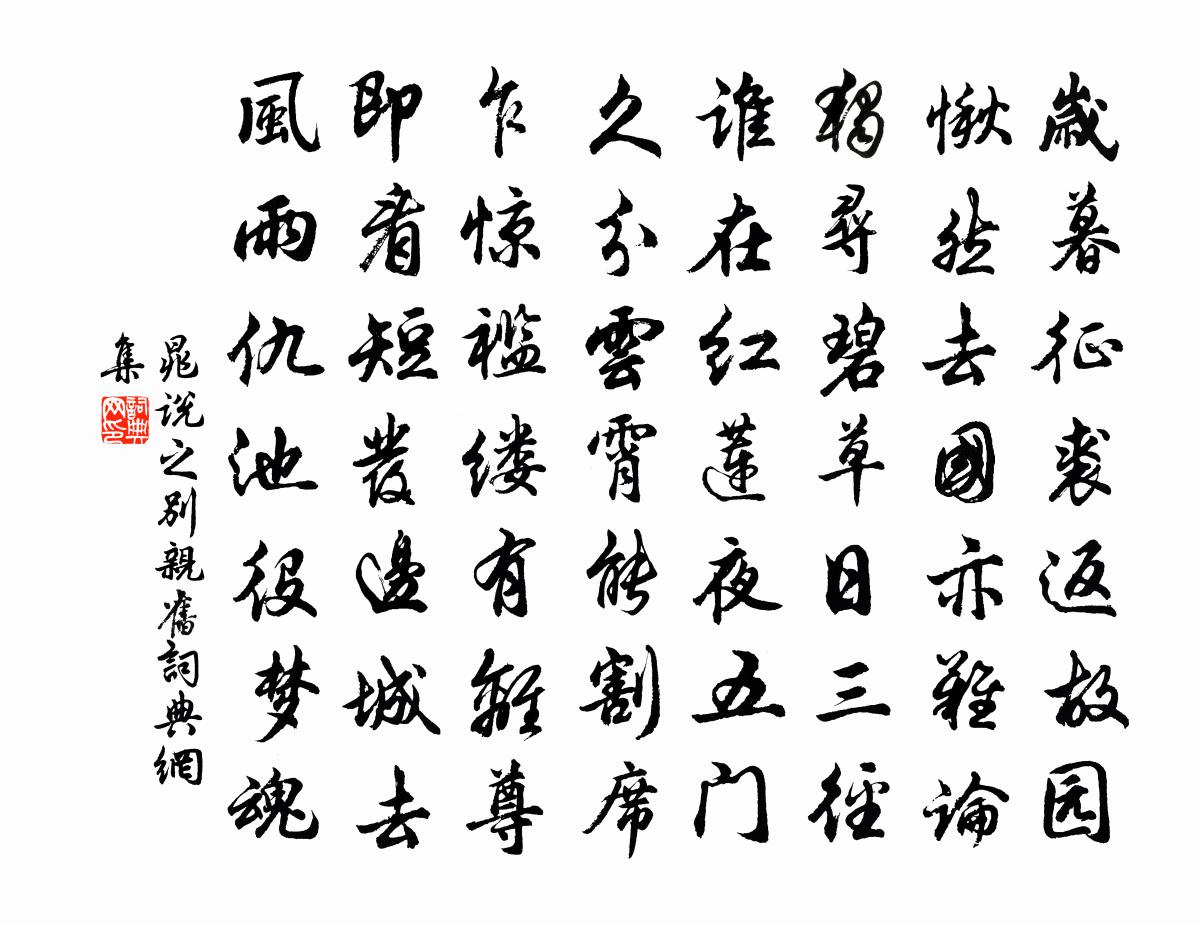 歲暮征裘返故园
愀然去國亦難論
獨尋碧草日三徑
誰在红蓮夜五门
久分雲霄能割席
乍惊褴缕有離尊
即看短發邊城去
風雨仇池役梦魂
晁说之別親舊詞典網
集
詞典
网印